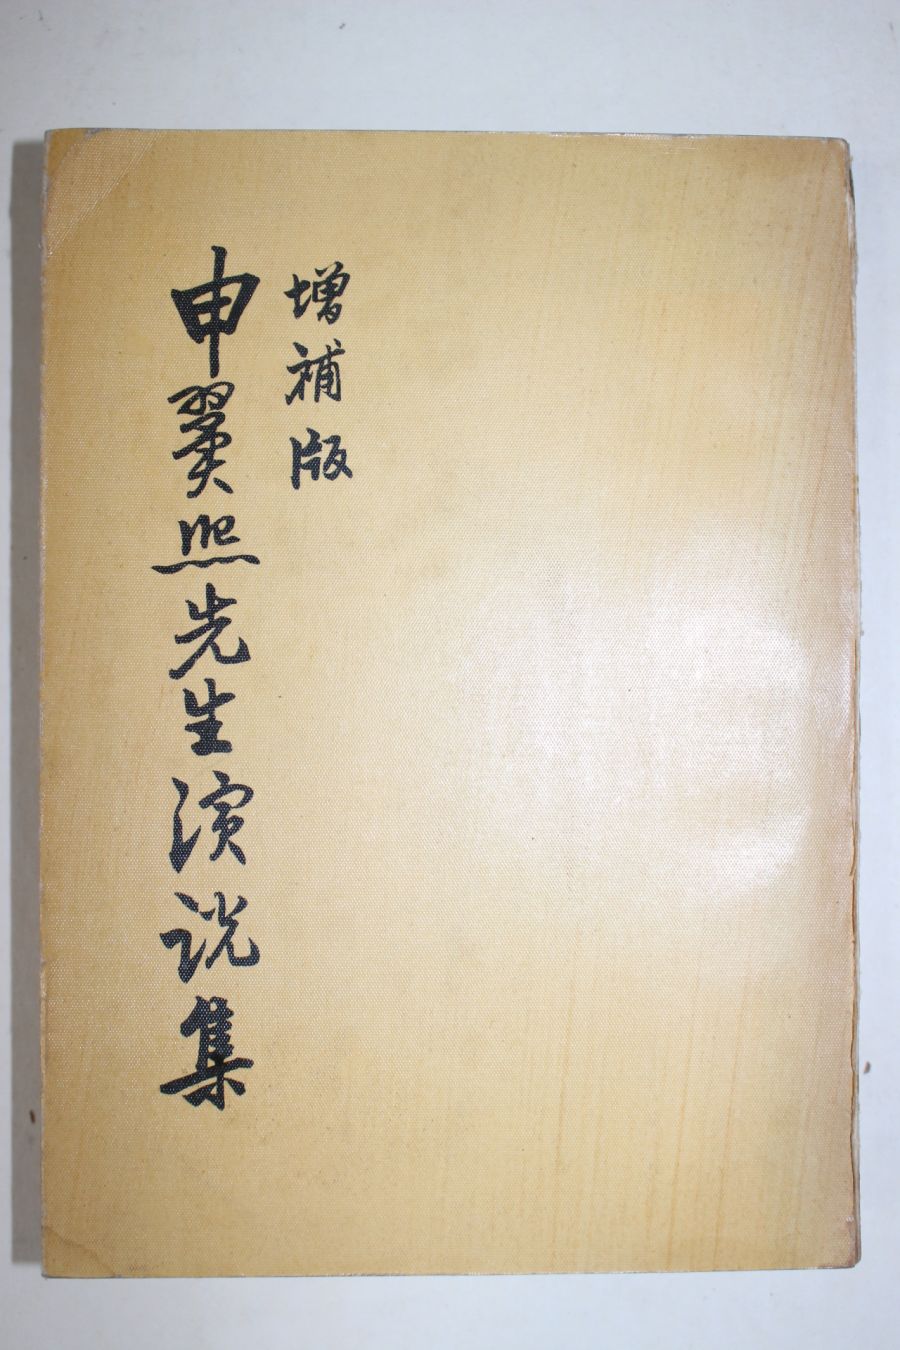 增補版
申翼熙先生演説集